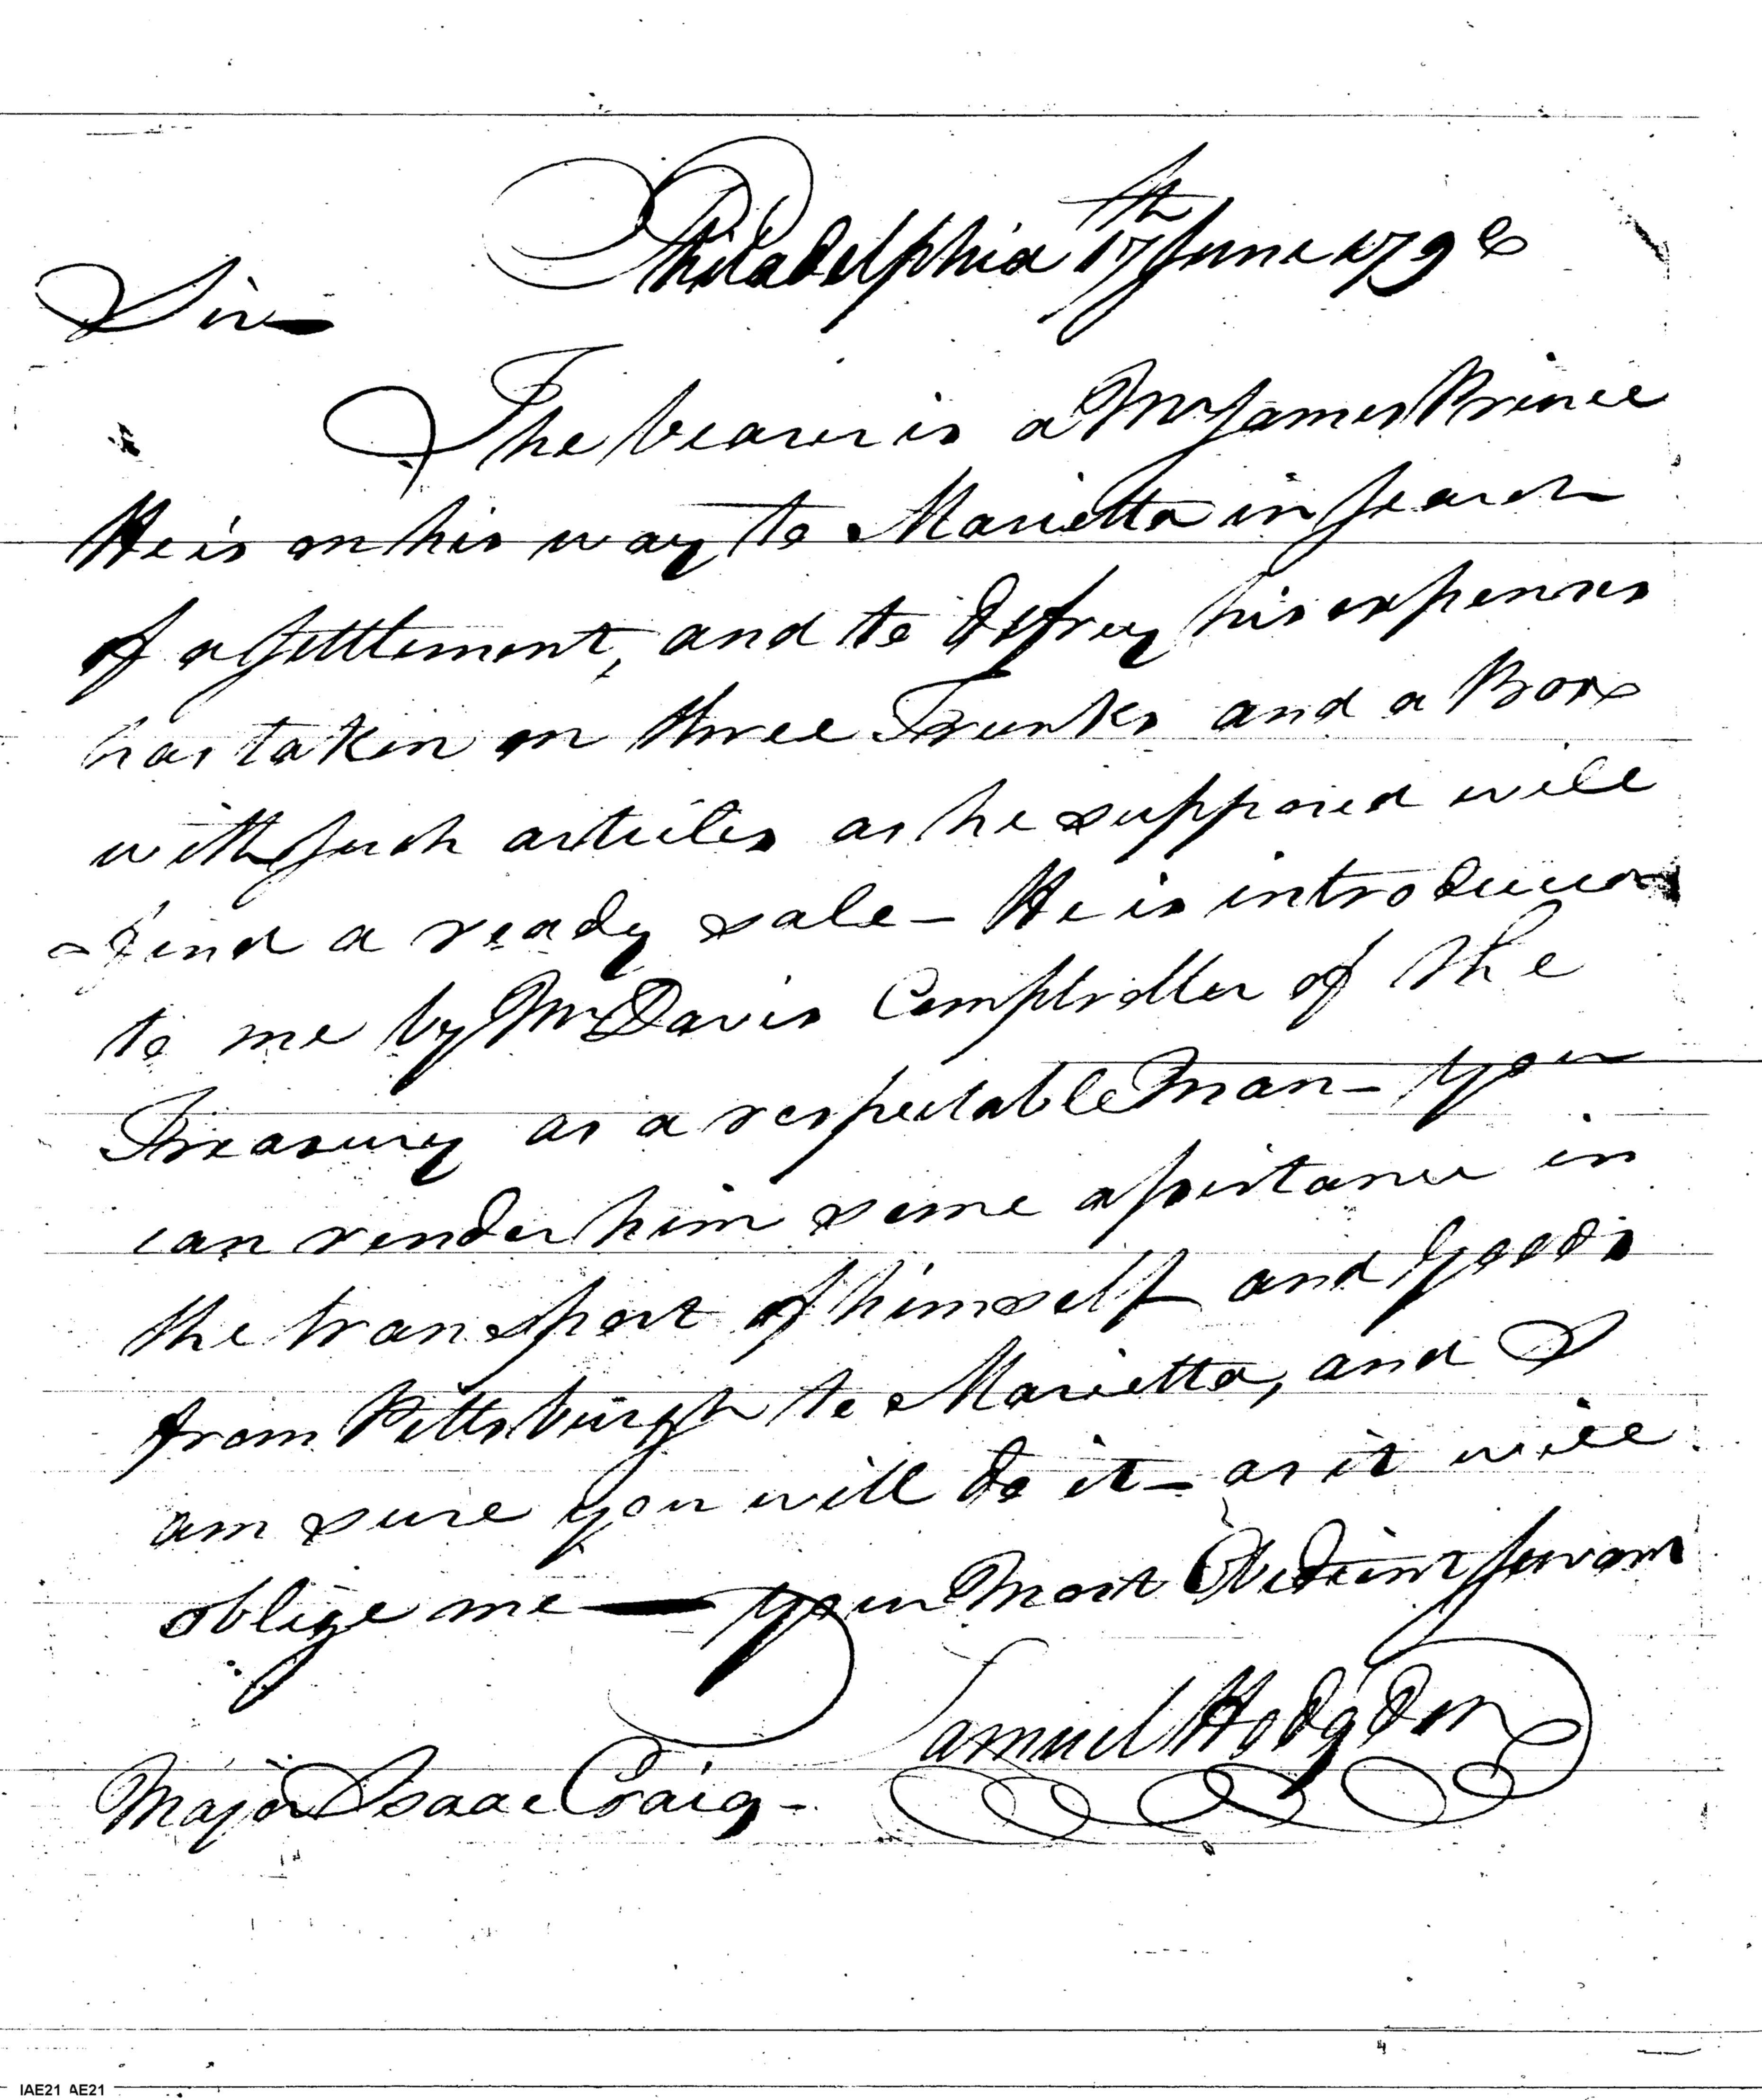 Philadelphia 17th June 1796
Sir
The bearer is a Mr James Prince
He is on his way to Marietta in search
of a settlement, and to defray his expenses
has taken on three Trunks and a Box
with such articles as he supposed will
find a ready sale - He is introduced
to me by Mr Davis Comptroller of the
Treasury as a respectable Man - you
can render him some assistance in
the transport of himself and goods
from Pittsburgh to Marietta, and I
am sure you will do it - as it will
oblige me — your most Obedient servant
Samuel Hodgdon
Major Isaac Craig -
IAE21 AE21